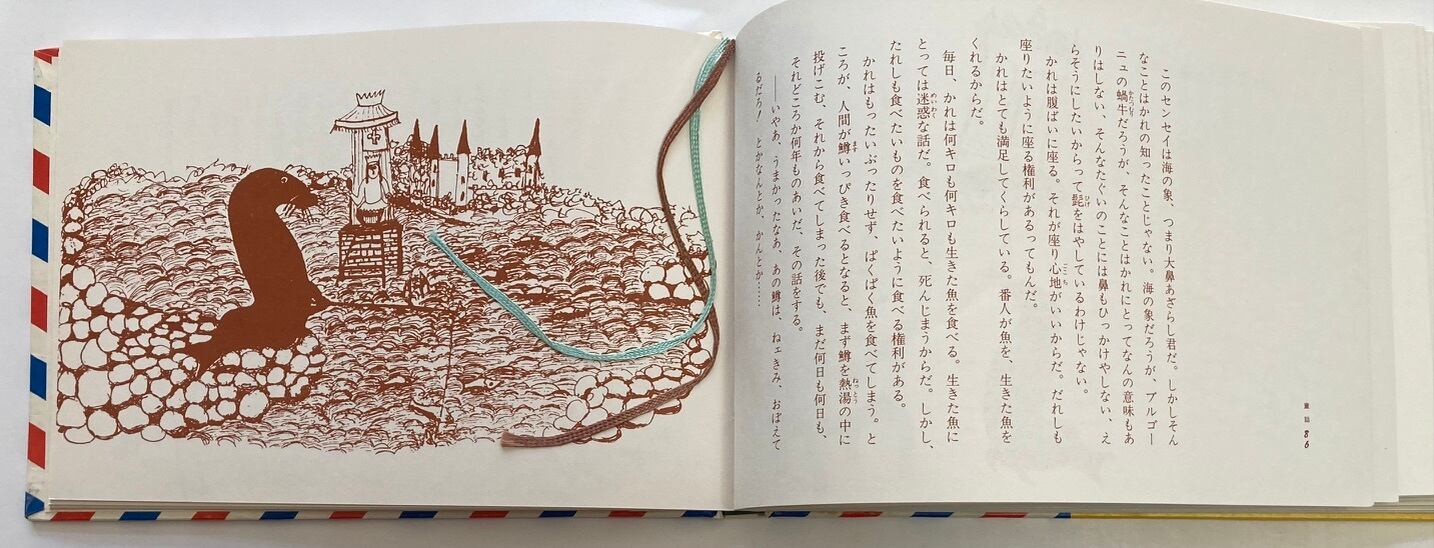 このセンセイは海の象、つまり大鼻あざらし君だ。しかしそん
なことはかれの知ったことじゃない。海の象だろうが、ブルゴー
ニュの蝸牛だろうが、そんなことはかれにとってなんの意味もあ
りはしない、そんなたぐいのことには鼻もひっかけやしない、え
らそうにしたいからって髭をはやしているわけじゃない。
かれは腹ばいに座る。それが座り心地がいいからだ。だれしも
座りたいように座る権利があるってもんだ。
かれはとても満足してくらしている。番人が魚を、生きた魚を
くれるからだ。
毎日、かれは何キロも何キロも生きた魚を食べる。生きた魚に
とっては迷惑な話だ。食べられると、死んじまうからだ。しかし、
だれしも食べたいものを食べたいように食べる権利がある。
かれはもったいぶったりせず、ぱくぱく魚を食べてしまう。と
ころが、人間が鱒いっぴき食べるとなると、まず鱒を熱湯の中に
投げこむ、それから食べてしまった後でも、まだ何日も何日も、
それどころか何年ものあいだ、その話をする。
――いやあ、うまかったなあ、あの鱒は、ねェきみ、おぼえて
るだろ！ とかなんとか、かんとか……
童話 86